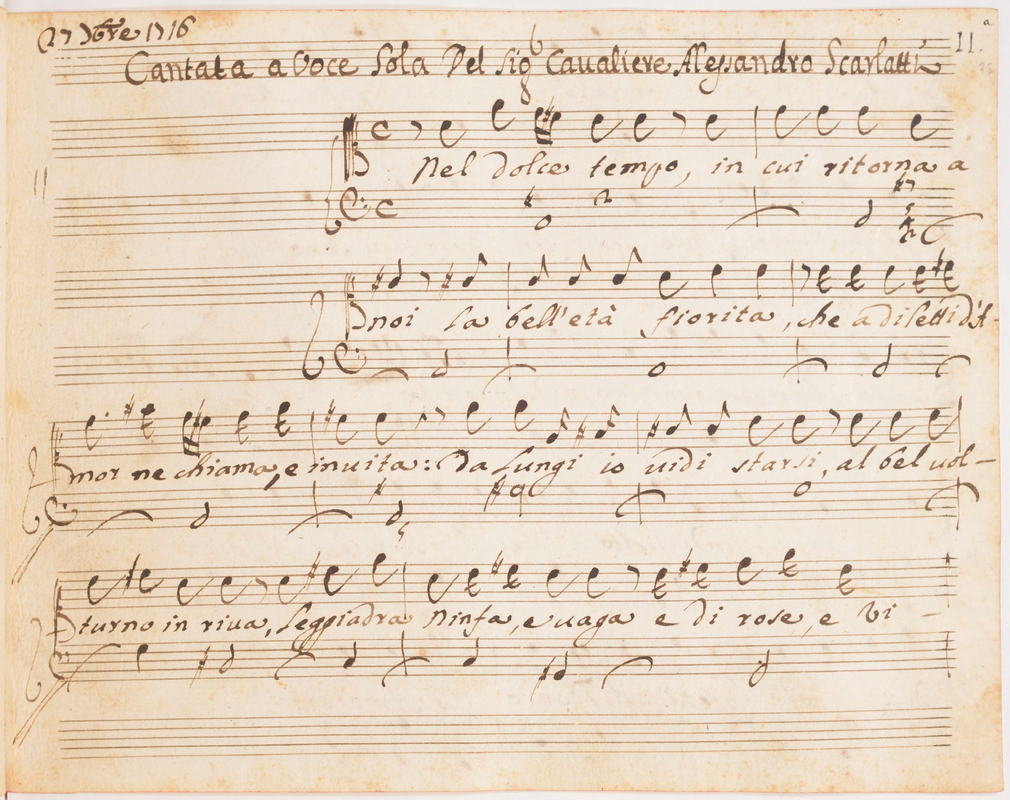 1716
11.
Cantata a Voce Sola Del Sig Caualiere Alessandro Scarlatti
Nel dolce tempo, in cui ritorna a
11
noi la bell'età fiorita, che a diletti d'A-
mor ne chiama, e inuita: Da lungi io uidi starsi, al bel uol-
turno in riua, leggiadra Ninfa, e uaga e di rose, e Vi-